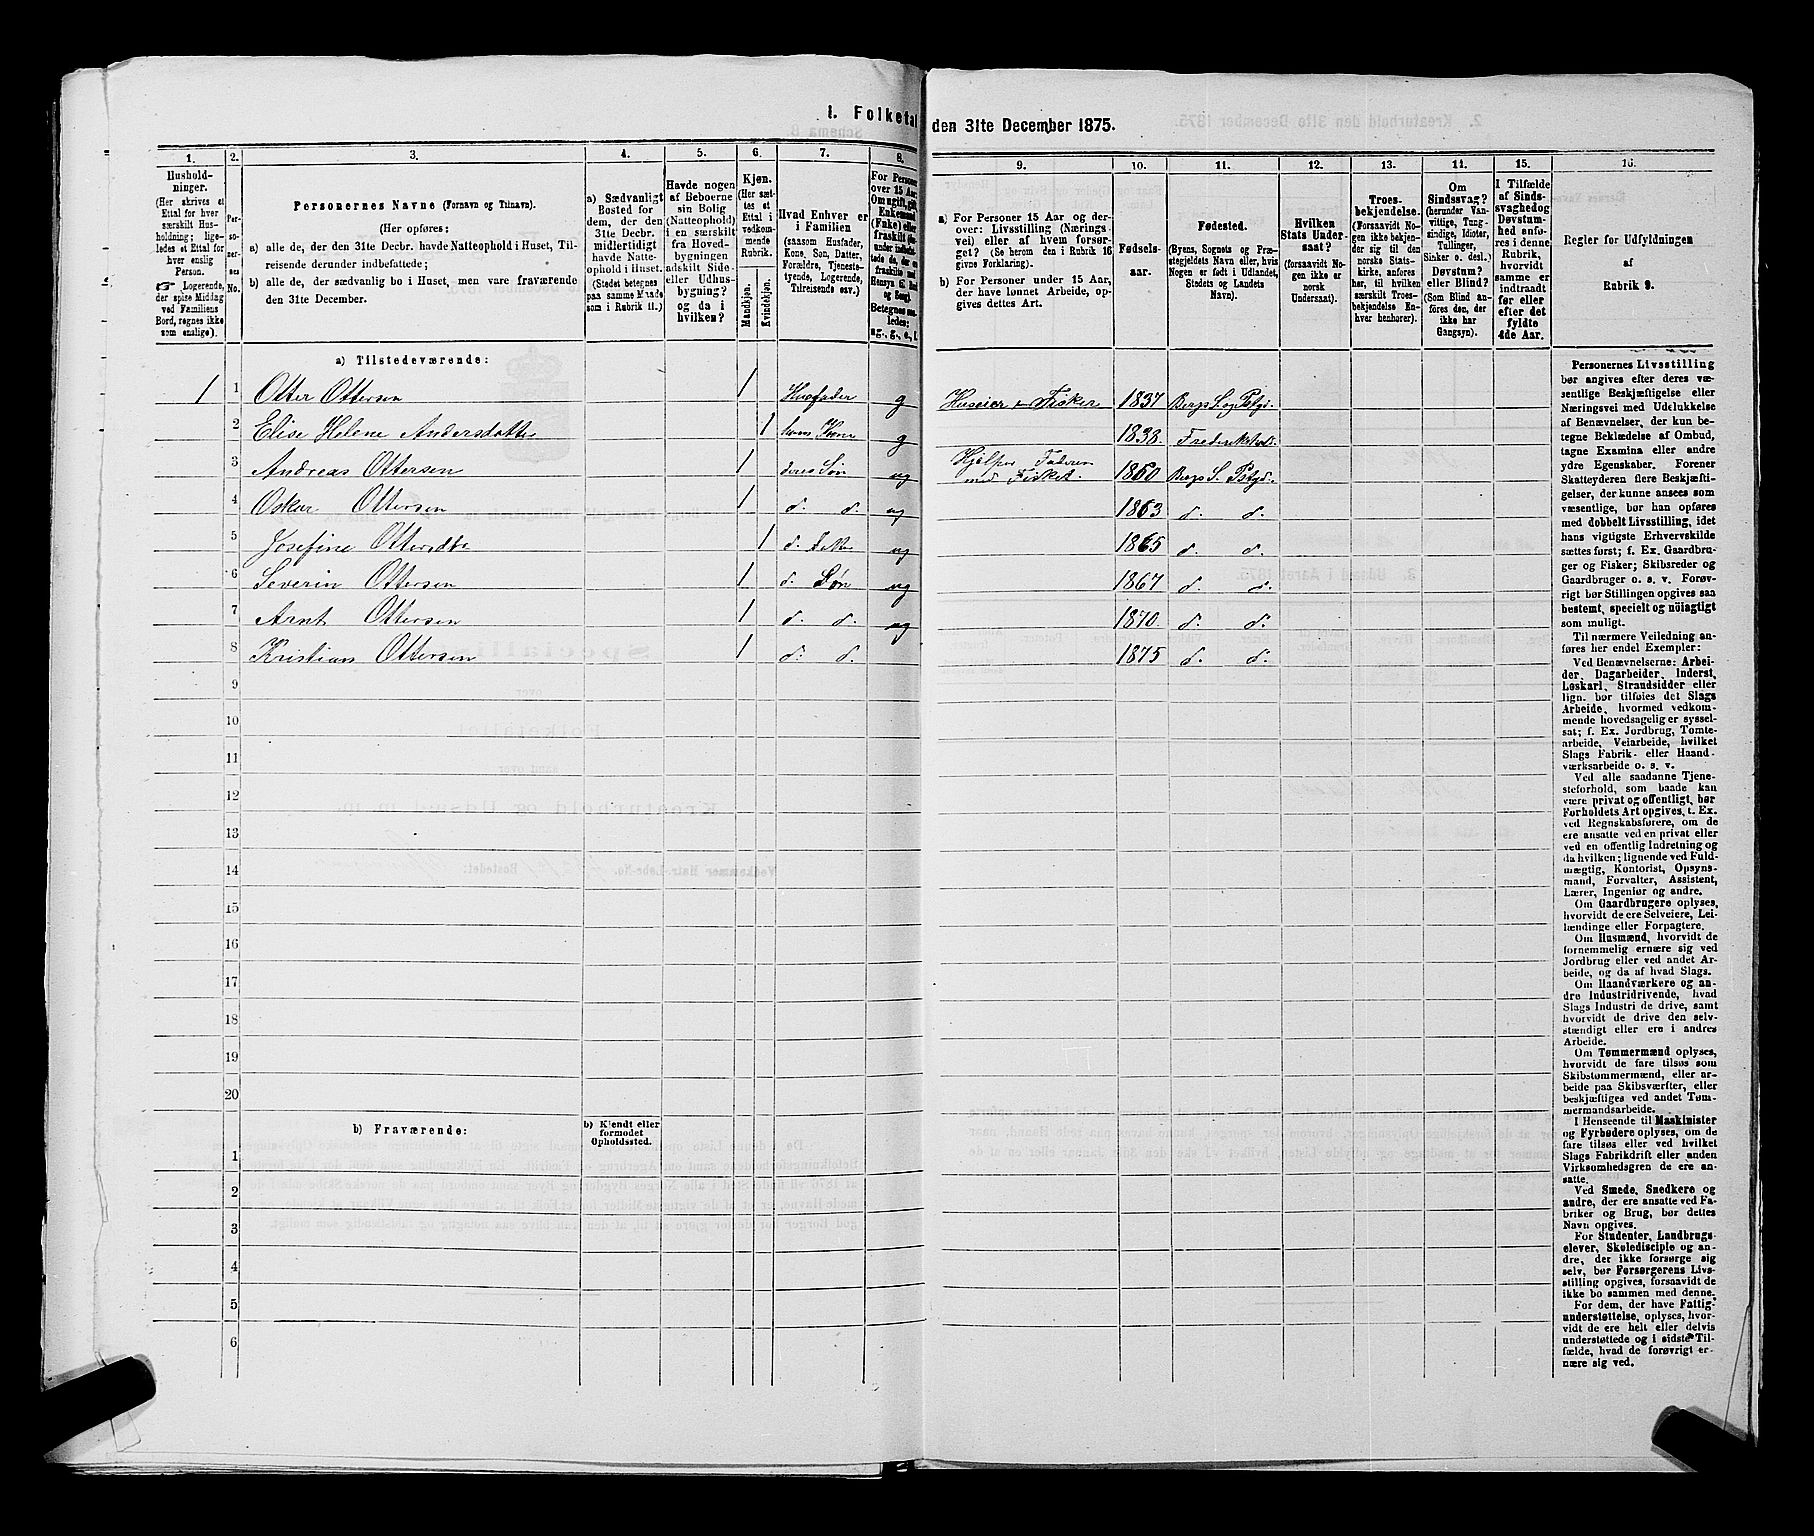 1. Folketal den 31te December 1875.
1.
Hushold-
ninger.
(Her skrives et
Ettal for hver
særskilt Hus-
holdning; lige-
ledes et Ettal for
hver enslig
Person.
☞ Logerende,
der spise Middag
ved Familiens
Bord, regnes ikke
som enslige).
2.
Per-
so-
ner-
nes
No.
3.
Personernes Navne (Fornavn og Tilnavn).
(Her opføres:
a) alle de, der den 31te Decbr. havde Natteophold i Huset, Til-
reisende derunder indbefattede;
b) alle de, der sædvanlig bo i Huset, men vare fraværende
den 31te December.
4.
a) Sædvanligt
Bosted for
dem, der den
31te Decbr.
midlertidigt
havde Natte-
ophold i Huset.
(Stedet betegnes
paa samme Maade
som i Rubrik 11.)
5.
Havde nogen
af Beboerne
sin Bolig
(Natteophold)
i en særskilt
fra Hoved-
bygningen
adskilt Side-
eller Udhus-
bygning?
og da i
hvilken?
6.
Kjøn.
(Her sæt-
tes et
Ettal i
vedkom-
mende
Rubrik.
Mandkjøn.
Kvindekjøn.
7.
Hvad Enhver er
i Familien
(saasom Husfader,
Kone, Søn, Datter,
Forældre, Tjeneste-
tyende, Logerende,
Tilreisende osv.)
8.
For Personer
over 15 Aar:
Om ugift, gift,
Enkemand
(Enke) eller
fraskilt
Betegnes saa-
ledes:
ug., g., e., f.
9.
a) For Personer 15 Aar og der-
over: Livsstilling (Nærings-
vei) eller af hvem forsør-
get? (Se herom den i Rubrik 16
givne Forklaring).
b) For Personer under 15 Aar,
der have lønnet Arbeide, op-
gives dettes Art.
10.
Fødsels-
aar.
11.
Fødested.
(Byens, Sognets og Præ-
stegjeldets Navn eller, hvis
Nogen er født i Udlandet,
Stedets og Landets
Navn).
12.
Hvilken
Stats Under-
saat?
(forsaavidt No-
gen ikke er
norsk
Undersaat).
13.
Troes-
bekjendelse.
(Forsaavidt No-
gen ikke bekjen-
der sig til den
norske Stats-
kirke, anføres
her, til hvilken
særskilt Troes-
bekjendelse En-
hver henhører).
14.
Om
Sindssvag?
(herunder Van-
vittige, Tung-
sindige, Idioter,
Tullinger,
Sinker o. desl.)
Døvstum?
eller Blind?
(Som Blind an-
føres den, der
ikke har
Gangsyn).
15.
I Tilfælde
af Sinds-
svaghed og
Døvstum-
hed anfø-
res i denne
Rubrik,
hvorvidt
samme er
indtraadt
før eller
efter det
fyldte
4de Aar.
16.
Regler for Udfyldningen
af
Rubrik 9.
a) Tilstedeværende:
1 1 Otter Ottersen 1 Husfader g Huseier Fisker 1837 Bergs Sog Pstgd.
2 Elise Helene Andersdatter 1 hans Kone g 1838 Frederikshald.
3 Andreas Ottersen 1 deres Søn ug Hjelper Faderen
med Fisket. 1860 Bergs S. Pstgd.
4 Oskar Ottersen 1 d. d. ug 1863 d. d.
5 Josefine Ottersdtr 1 d. ug 1865 d. d.
6 Severin Ottersen 1 d. Søn ug 1867 d. d.
7 Arnt Ottersen 1 d. d. ug 1870 d. d.
8 Kristian Ottersen 1 d. d. 1875 d. d.
9
10
11
12
13
14
15
16
17
18
19
20
b) Fraværende:
b) Kjendt eller
formodet
Opholdssted.
1
2
3
4
5
6
Personernes Livsstilling
bør angives efter deres væ-
sentlige Beskjæftigelse eller
Næringsvei med Udelukkelse
af Benævnelser, der kun be-
tegne Beklædelse af Ombud,
tagne Examina eller andre
ydre Egenskaber. Forener
Skatteyderen flere Beskjæfti-
gelser, der kunne ansees som
væsentlige, bør han opføres
med dobbelt Livsstilling, idet
hans vigtigste Erhvervskilde
sættes først; f. Ex. Gaardbru-
ger og Fisker; Skibsreder og
Gaardbruger o. s. v. Forøv-
rigt bør Stillingen opgives saa
bestemt, specielt og nöiagtigt
som muligt.
Til nærmere Veiledning an-
føres her endel Exempler:
Ved Benævnelserne: Arbei-
der, Dagarbeider, Inderst,
Løskarl, Strandsidder eller
lign. bør tilføies det Slags
Arbeide, hvormed vedkom-
mende hovedsagelig er syssel-
sat; f. Ex. Jordbrug, Tomte-
arbeide, Veiarbeide, hvilket
Slags Fabrik- eller Haand-
værksarbeide o. s. v.
Ved alle saadanne Tjene-
steforhold, som baade kan
være privat og offentligt, bør
Forholdets Art opgives, t. Ex.
ved Regnskabsførere, om de
ere ansatte ved en privat eller
ved en offentlig Indretning og
da hvilken; lignende ved Fuld-
mægtig, Kontorist, Opsyns-
mand, Forvalter, Assistent,
Lærer, Ingeniør og andre.
Om Gaardbrugere oplyses,
hvorvidt de ere Selveiere, Lei-
lændinge eller Forpagtere.
Om Husmænd, hvorvidt de
fornemmelig ernære sig ved
Jordbrug eller ved andet Ar-
beide, og da af hvad Slags.
Om Haandværkere og an-
dre Industridrivende, hvad
Slags Industri de drive, samt
hvorvidt de drive den selv-
stændigt eller ere i andres
Arbeide.
Om Tømmermænd oplyses,
hvorvidt de fare tilsøs som
Skibstømmermænd, eller ar-
beide paa Skibsværfter, eller
beskjæftiges ved andet Tøm-
mermandsarbeide.
I Henseende til Maskinister
og Fyrbødere oplyses, om de
fare tilsøs eller ved hvilket
Slags Fabrikdrift eller anden
Virksomhedsgren de ere an-
satte.
Ved Smede, Snedkere og
andre, der ere ansatte ved Fa-
briker og Brug, bør dettes
Navn opgives.
For Studenter, Landbrugs-
elever, Skoledisciple og an-
dre, der ikke forsørge sig
selv, bør Forsørgerens Livs-
stilling opgives, forsaavidt de
ikke bo sammen med denne.
For dem, der have Fattig-
understøttelse, oplyses, hvor-
vidt de ere helt eller delvis
understøttede og i sidste Til-
fælde, hvad de forøvrigt er-
nære sig ved.